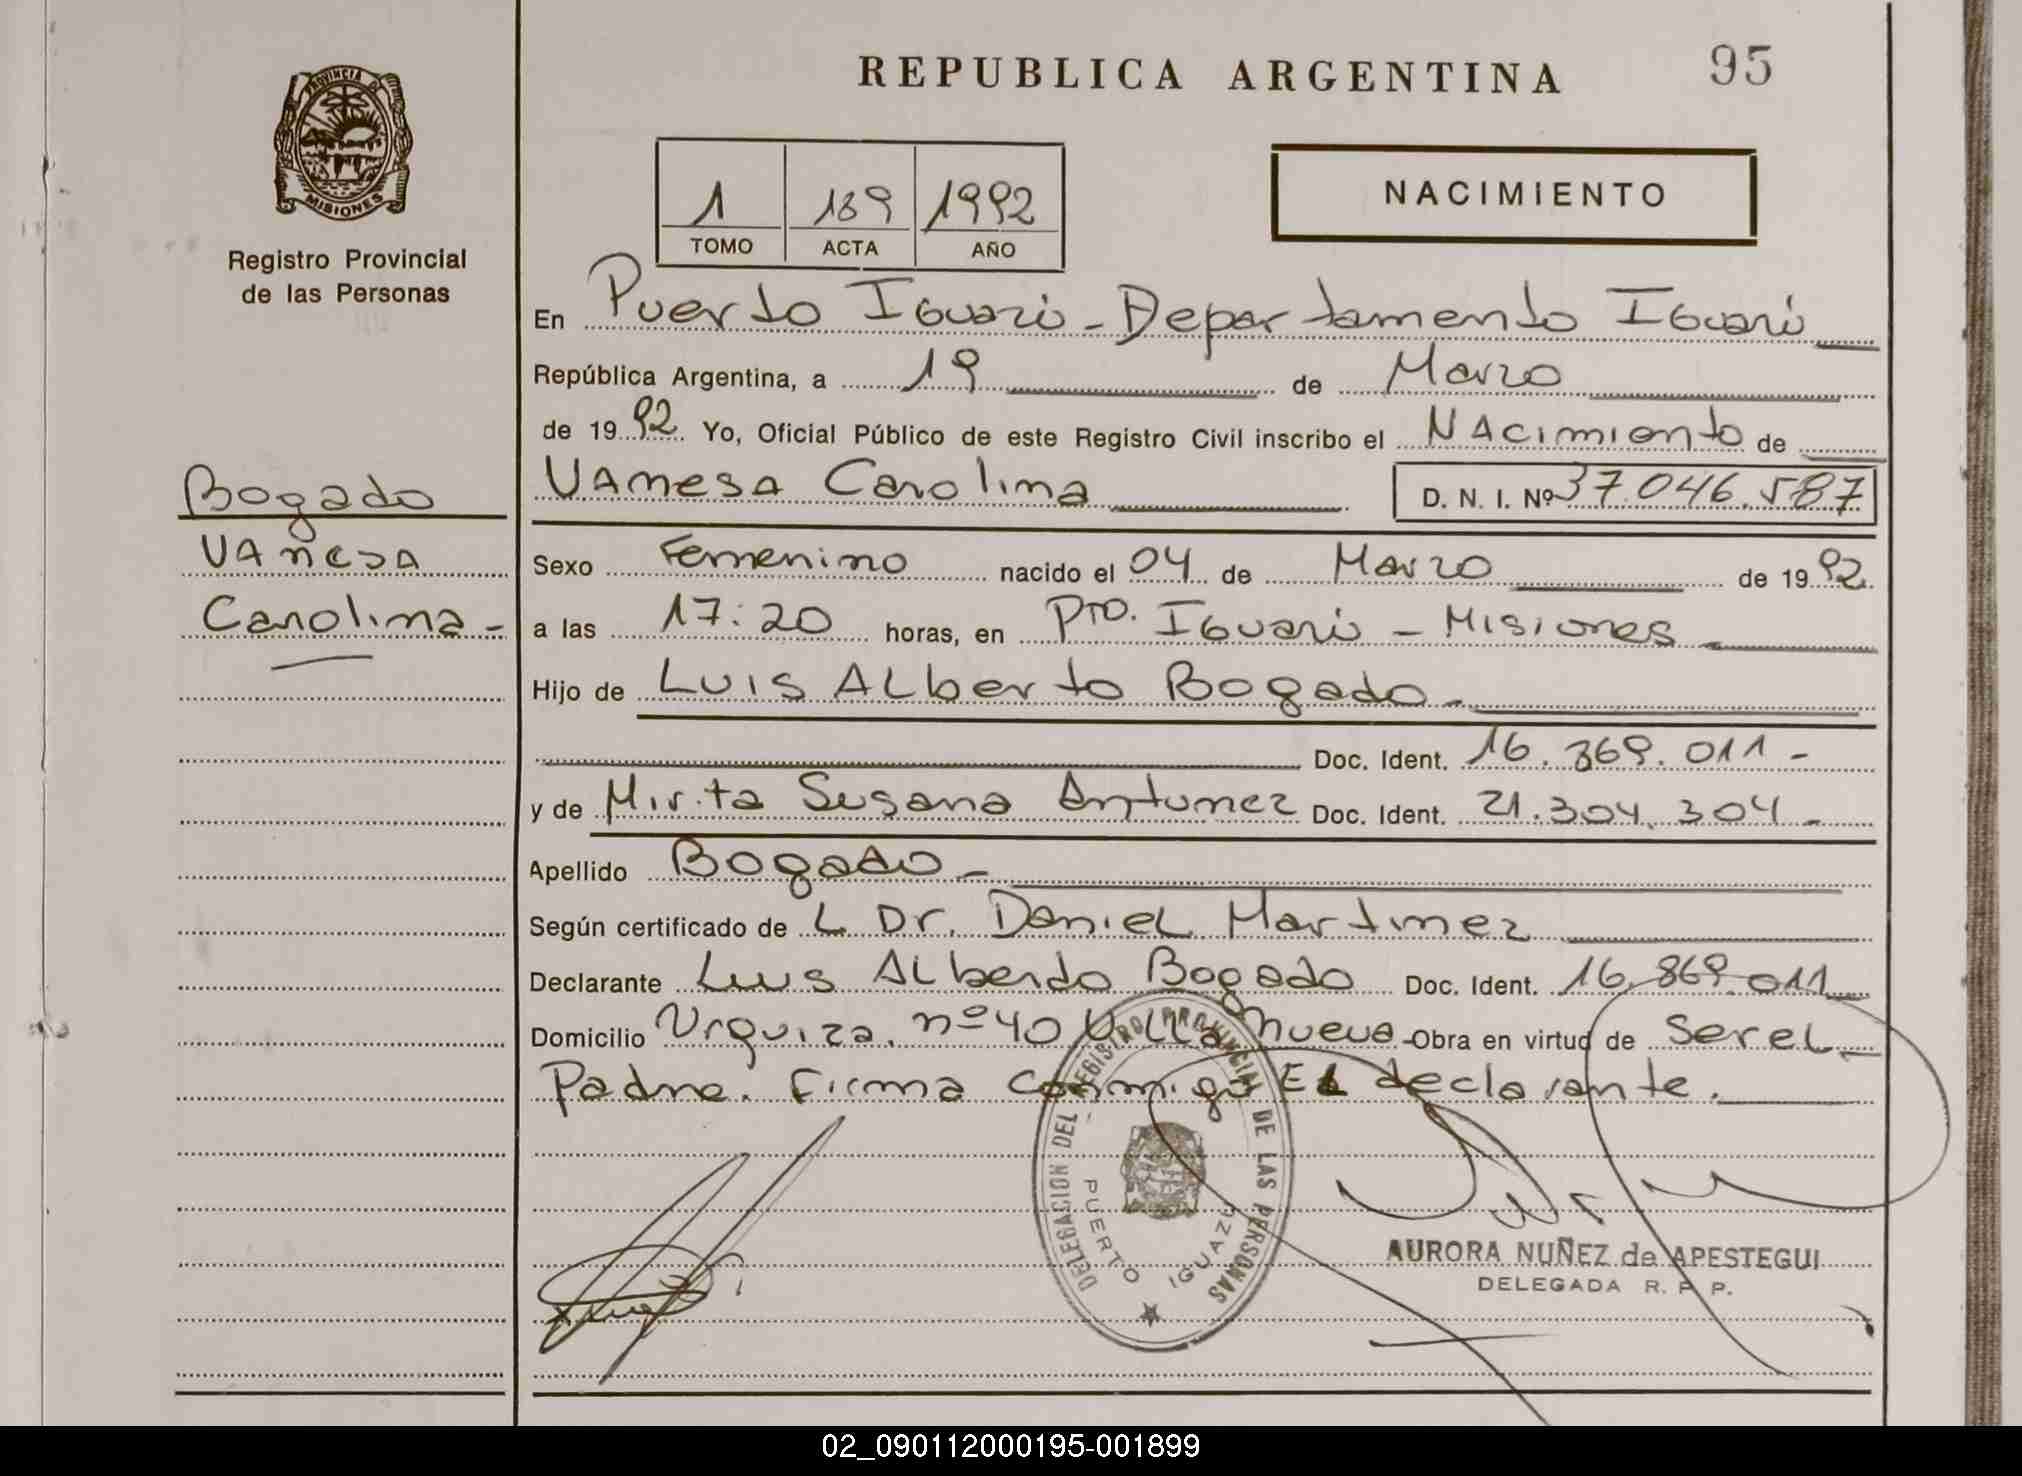 REPUBLICA ARGENTINA
95
PROVINCIA DE
MISIONES
Registro Provincial
de las Personas
1 189 1992
TOMO ACTA AÑO
NACIMIENTO
En Puerto Iguazú - Departamento Iguazú
República Argentina, a 19 de Marzo
de 1992 Yo, Oficial Público de este Registro Civil inscribo el NAcimiento de
Bogado
VAnesA
Carolina -
VAnesA Carolina D. N. I. Nº 37.046.587
Sexo Femenino nacido el 04 de Marzo de 1992.
a las 17:20 horas, en Pto. Iguazú - Misiones
Hijo de Luis ALberto Bogado -
Doc. Ident. 16.869.011 -
y de Mirta Susana Antunez Doc. Ident. 21.304.304 -
Apellido Bogado -
Según certificado de L Dr. DanieL Martinez
Declarante Luis ALberto Bogado Doc. Ident. 16.869.011
Domicilio Urquiza. nº 40 Villa nueva - Obra en virtud de Ser eL
Padre. Firma conmigo EL declarante.
DELEGACION DEL REGISTRO PROVINCIAL DE LAS PERSONAS
PUERTO IGUAZU
AURORA NUÑEZ de APESTEGUI
DELEGADA R. P. P.
02_090112000195-001899